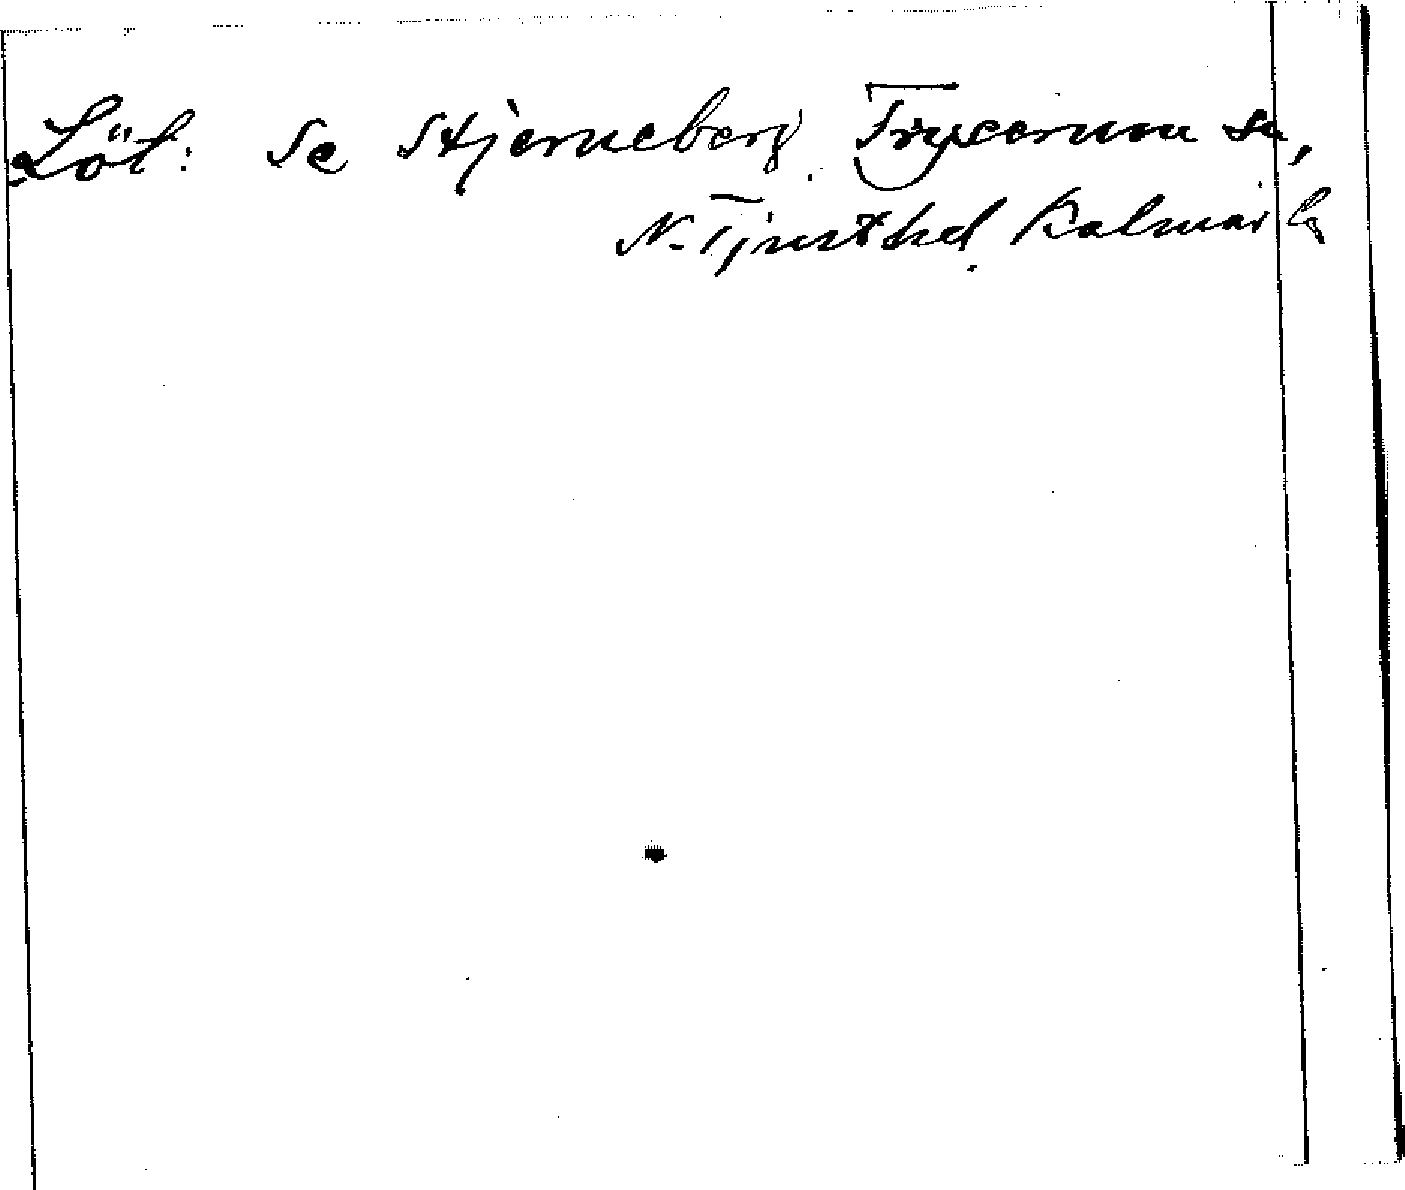 Löt: Se Stjerneberg, Tryserum sn,
N. Tjust hd, Kalmar l.